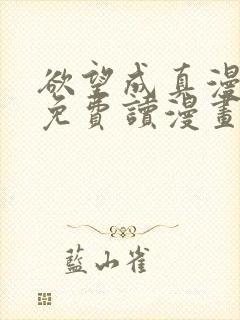 欲望成真漫
免費讀漫畫
藍小雀